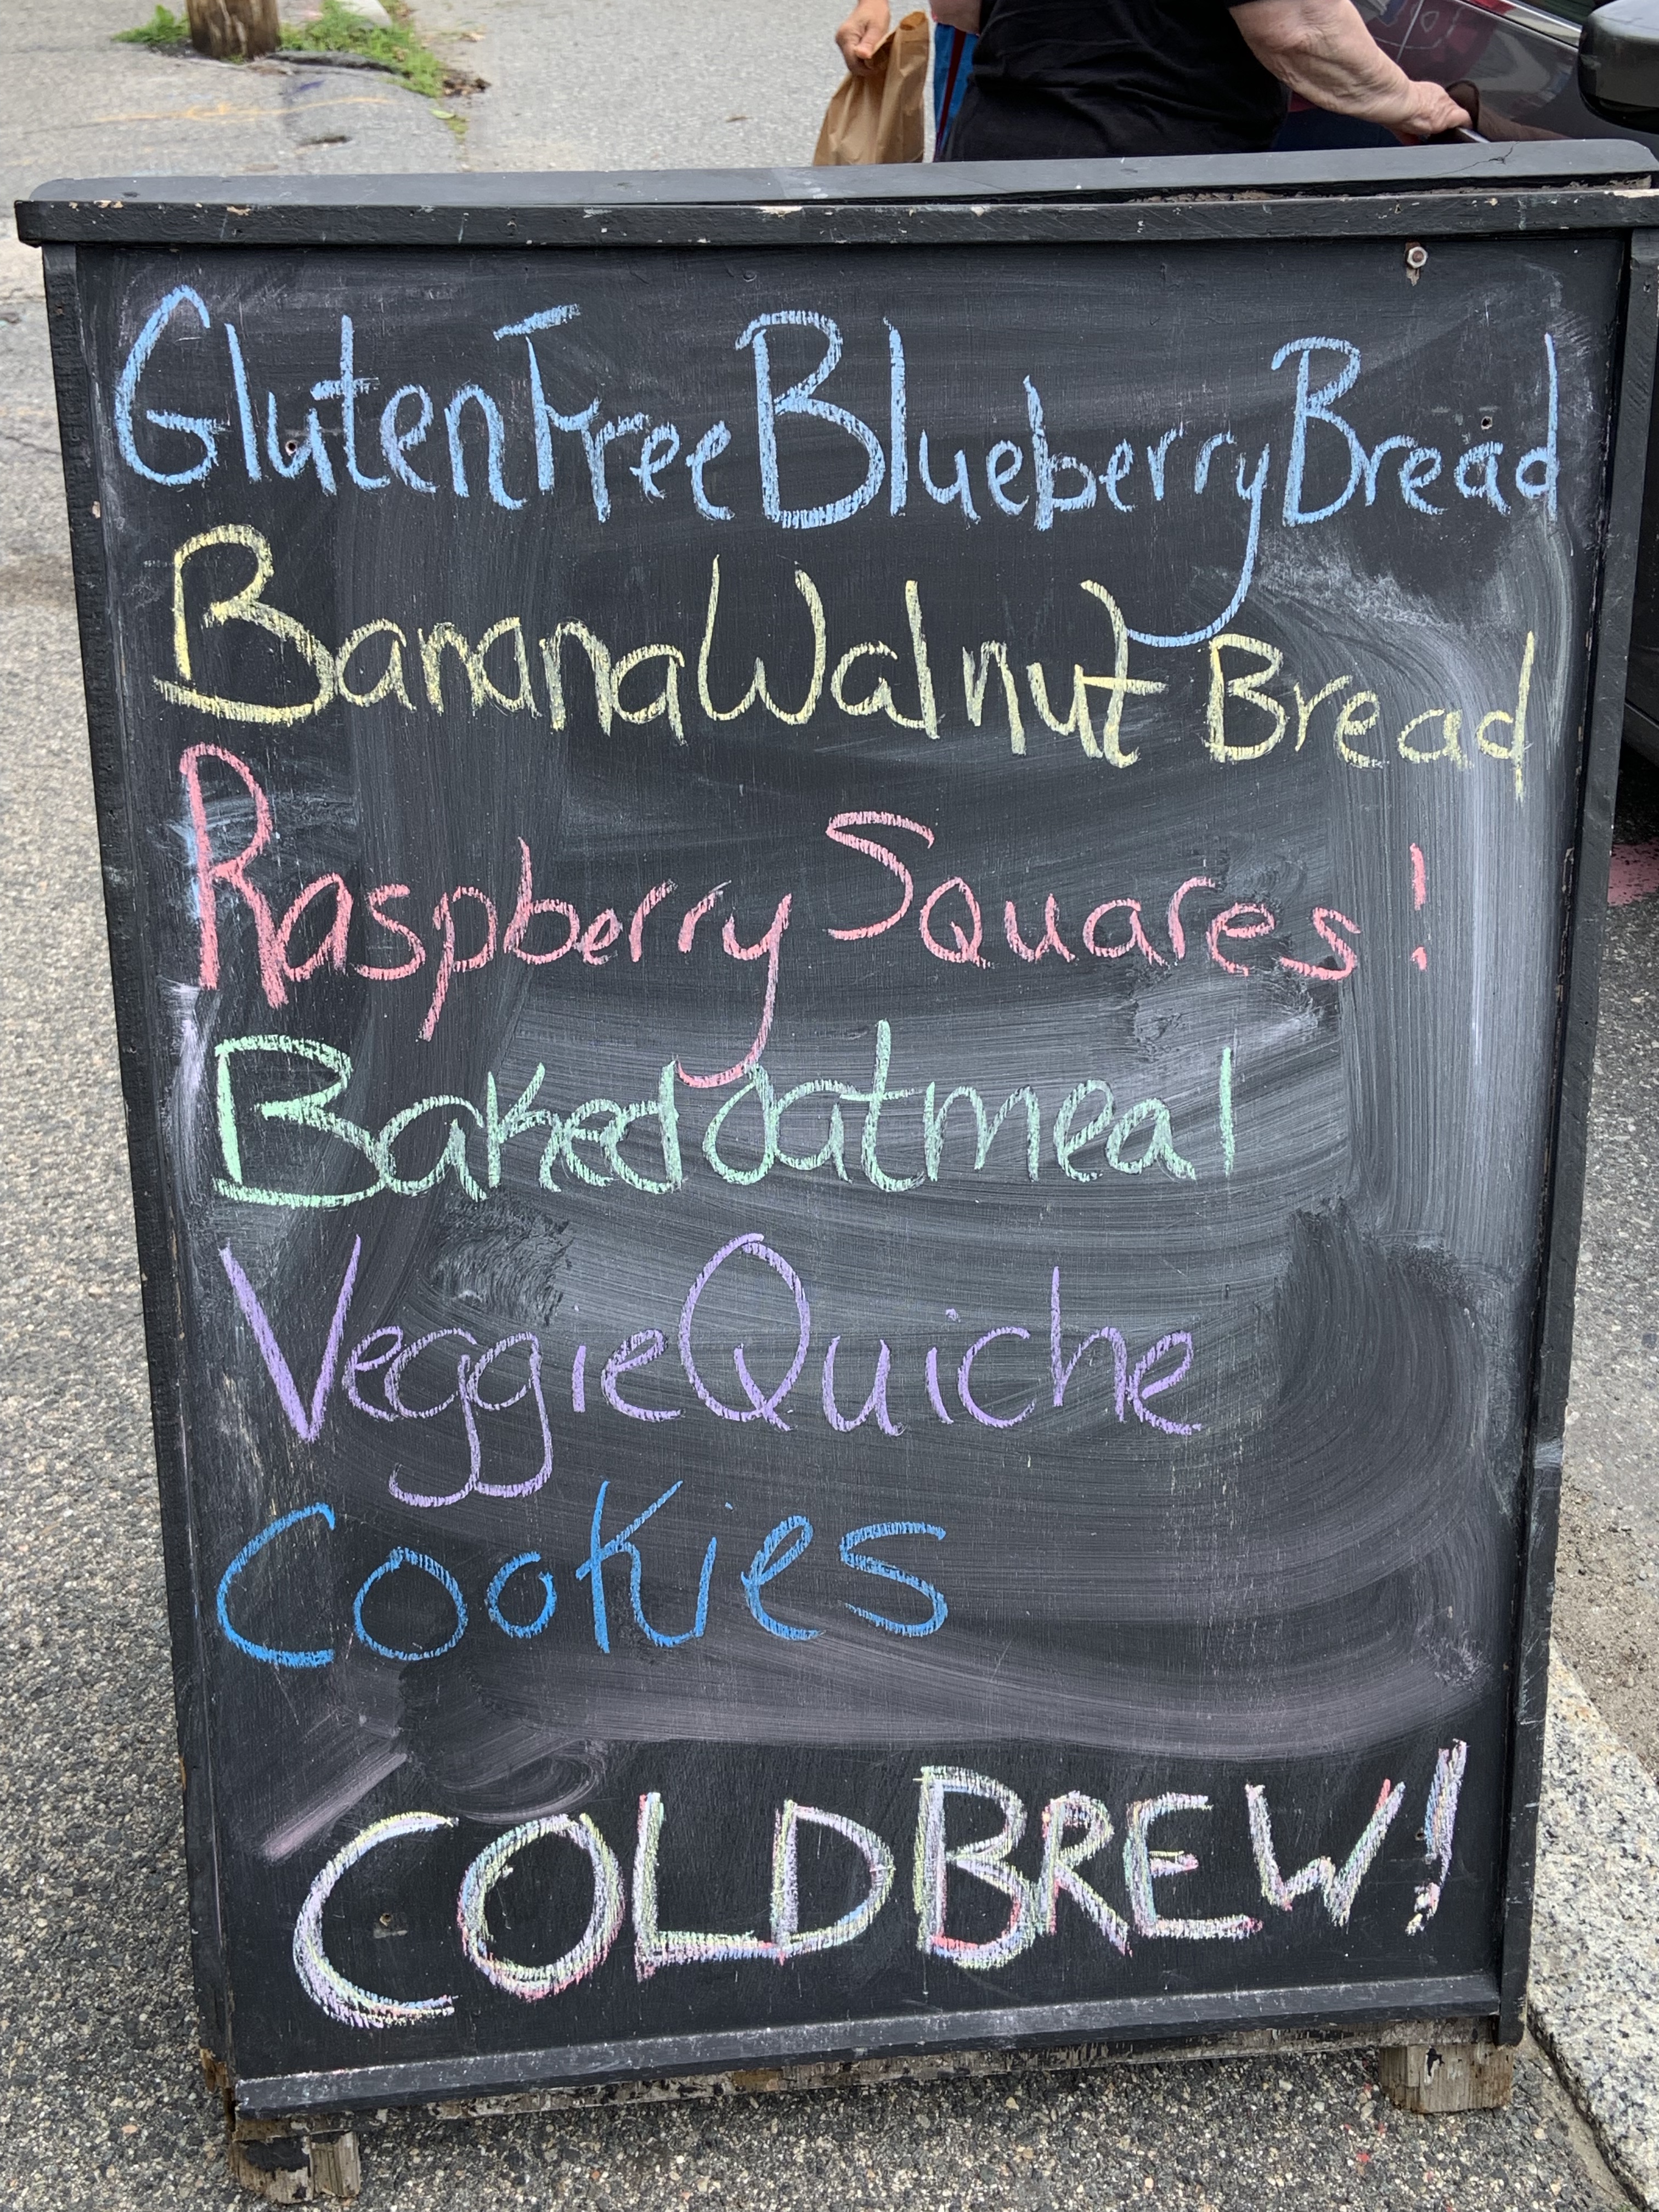 Gluten Free Blueberry Bread
Banana Walnut Bread
Raspberry Squares!
Baked oatmeal
Veggie Quiche
Cookies
COLD BREW!